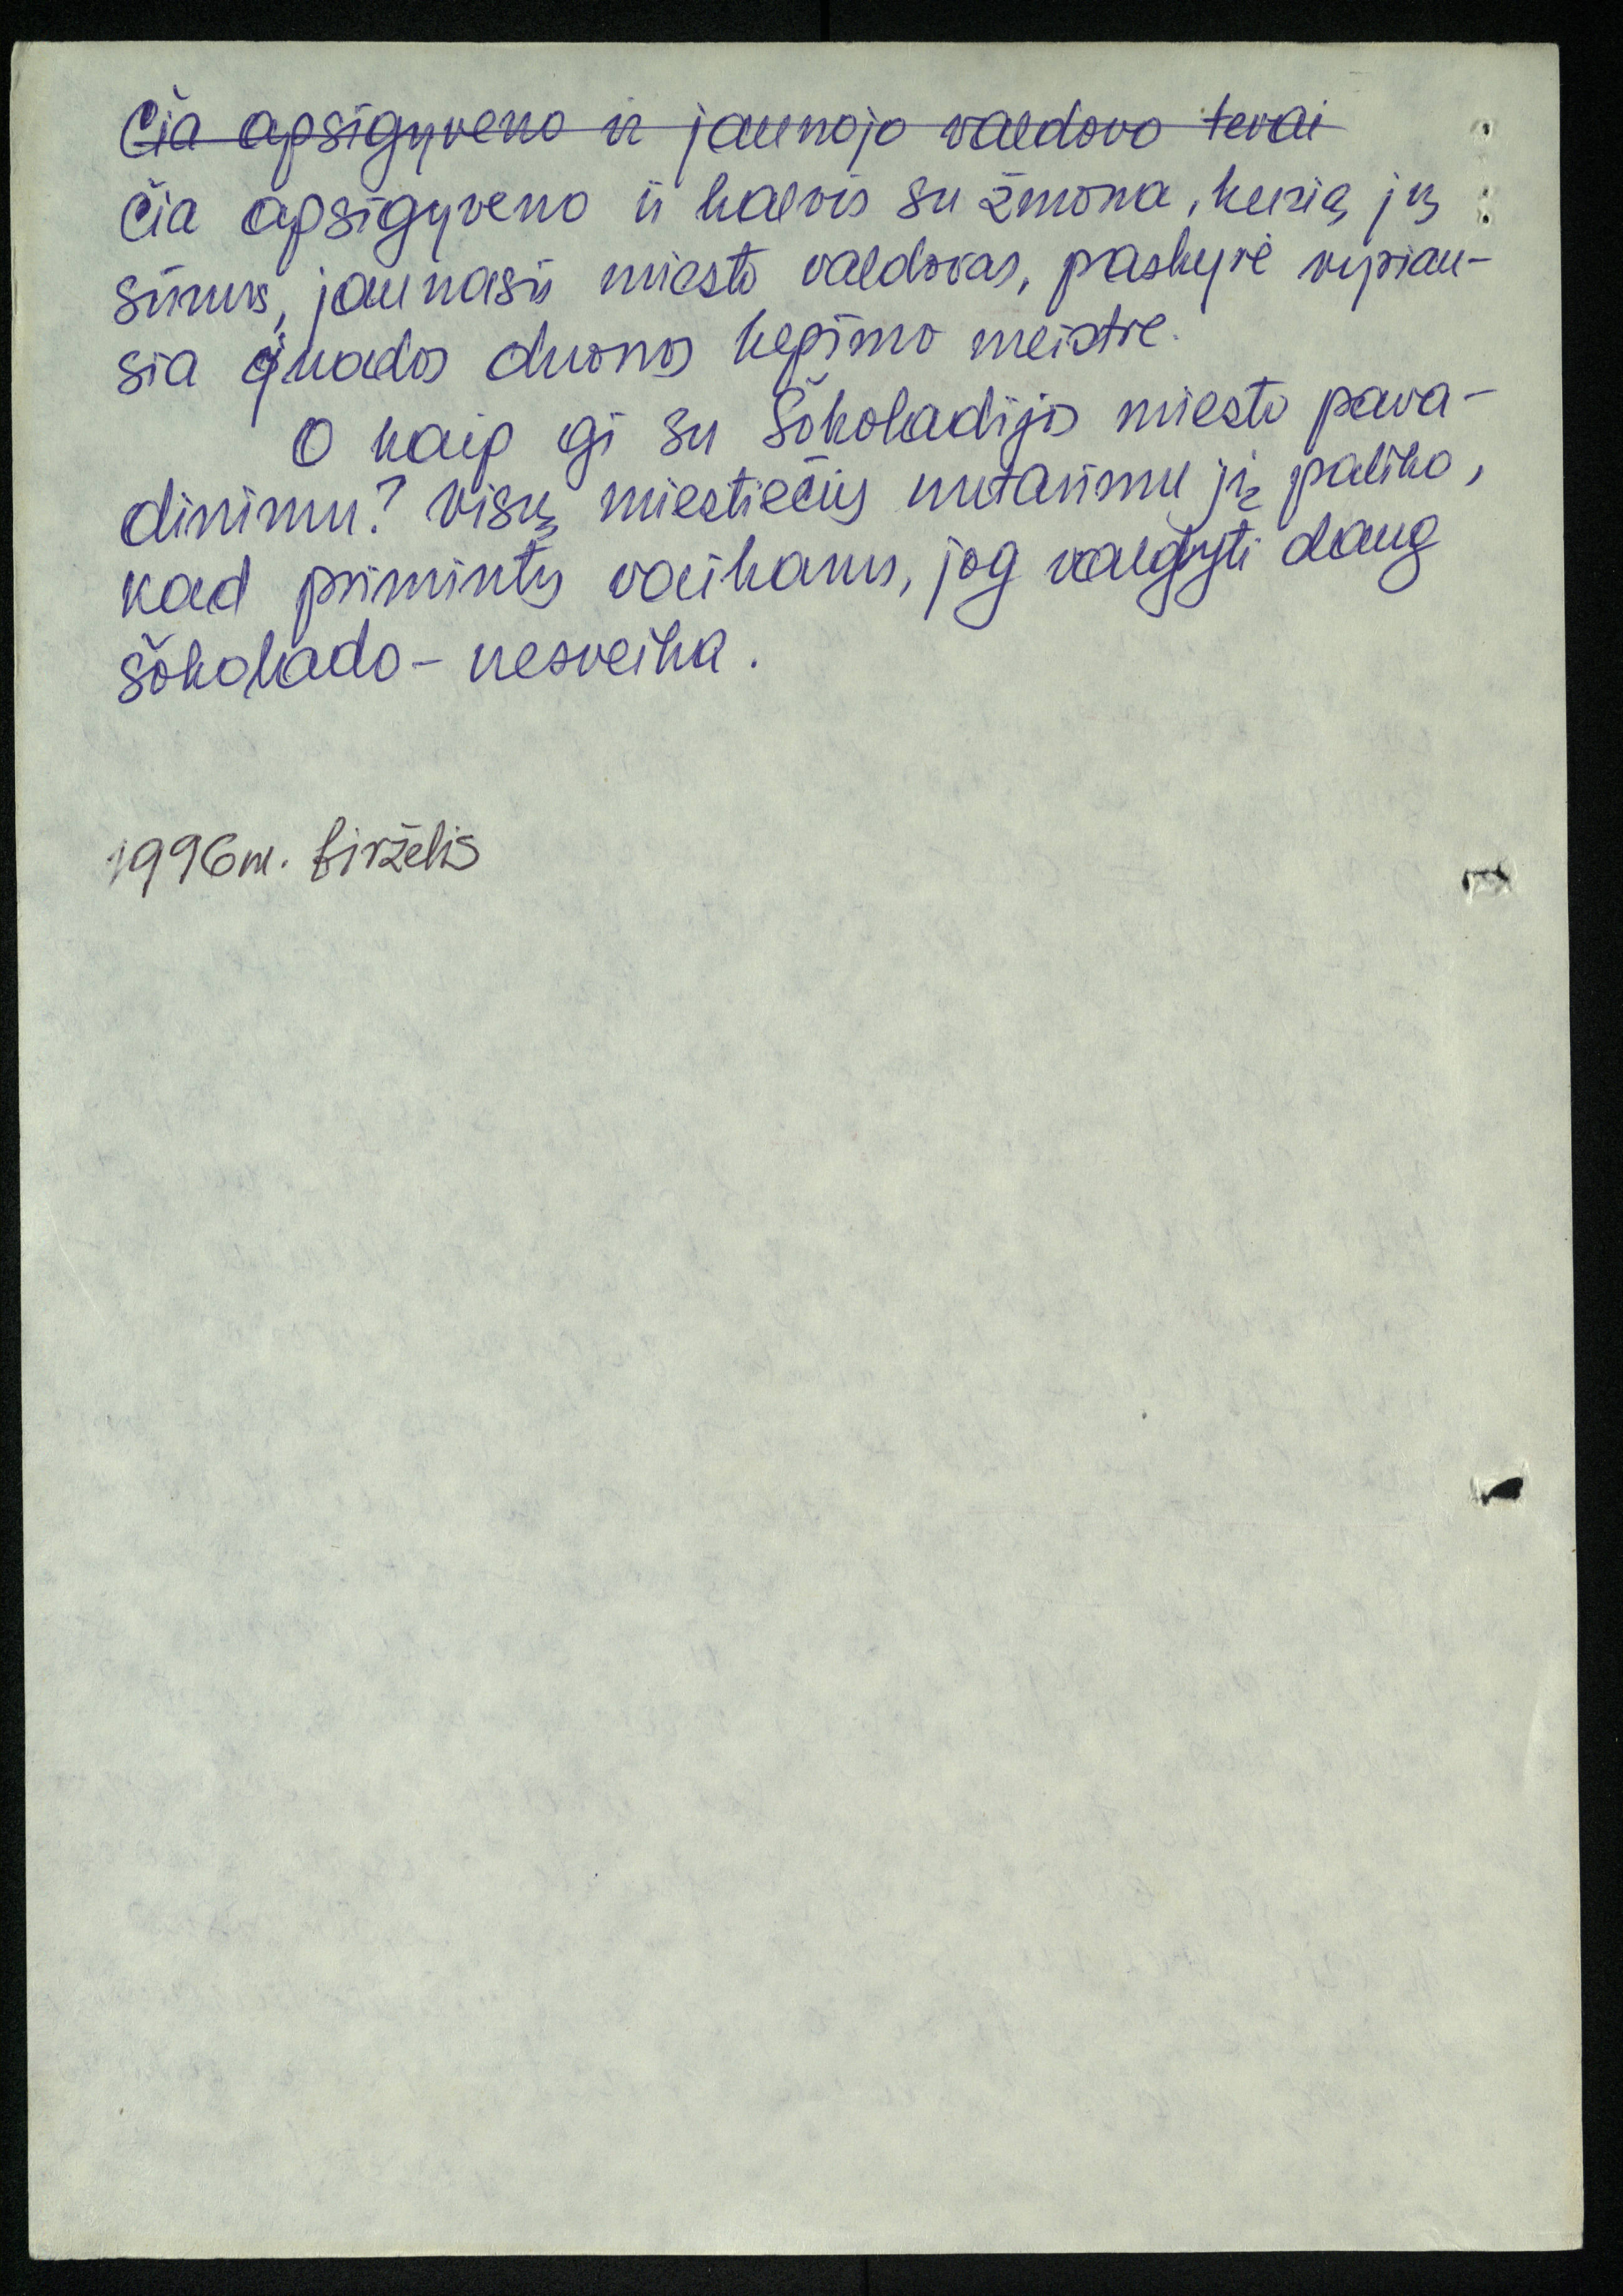 Čia apsigyveno ir jaunojo valdovo tevai
Čia apsigyveno ir kalvis su žmona, kurią jų
sūnus, jaunasis miesto valdovas, paskyrė vyriau-
sia juodos duonos kepimo meistre.
O kaip gi su Šokoladijos miesto pava-
dinimu? Visų miestiečių nutarimu jį paliko,
kad primintų vaikams, jog valgyti daug
šokolado - nesveika.
1996 m. birželis